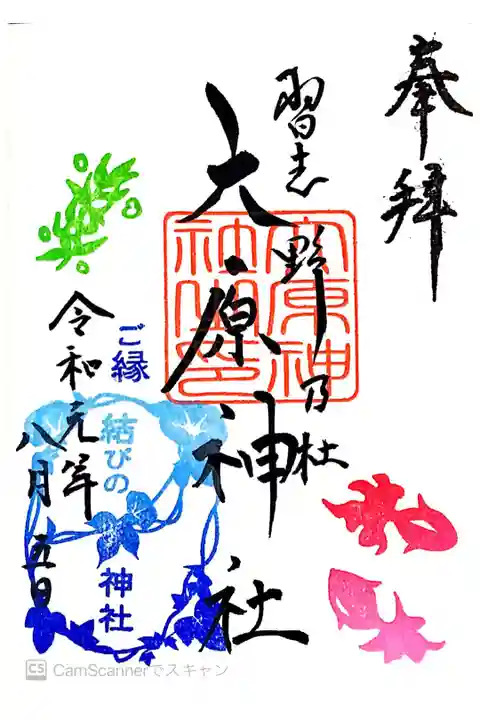 奉拝
習志野乃杜
大原神社
令和元年
八月五日
ご縁
結びの
神社
CS CamScannerでスキャン